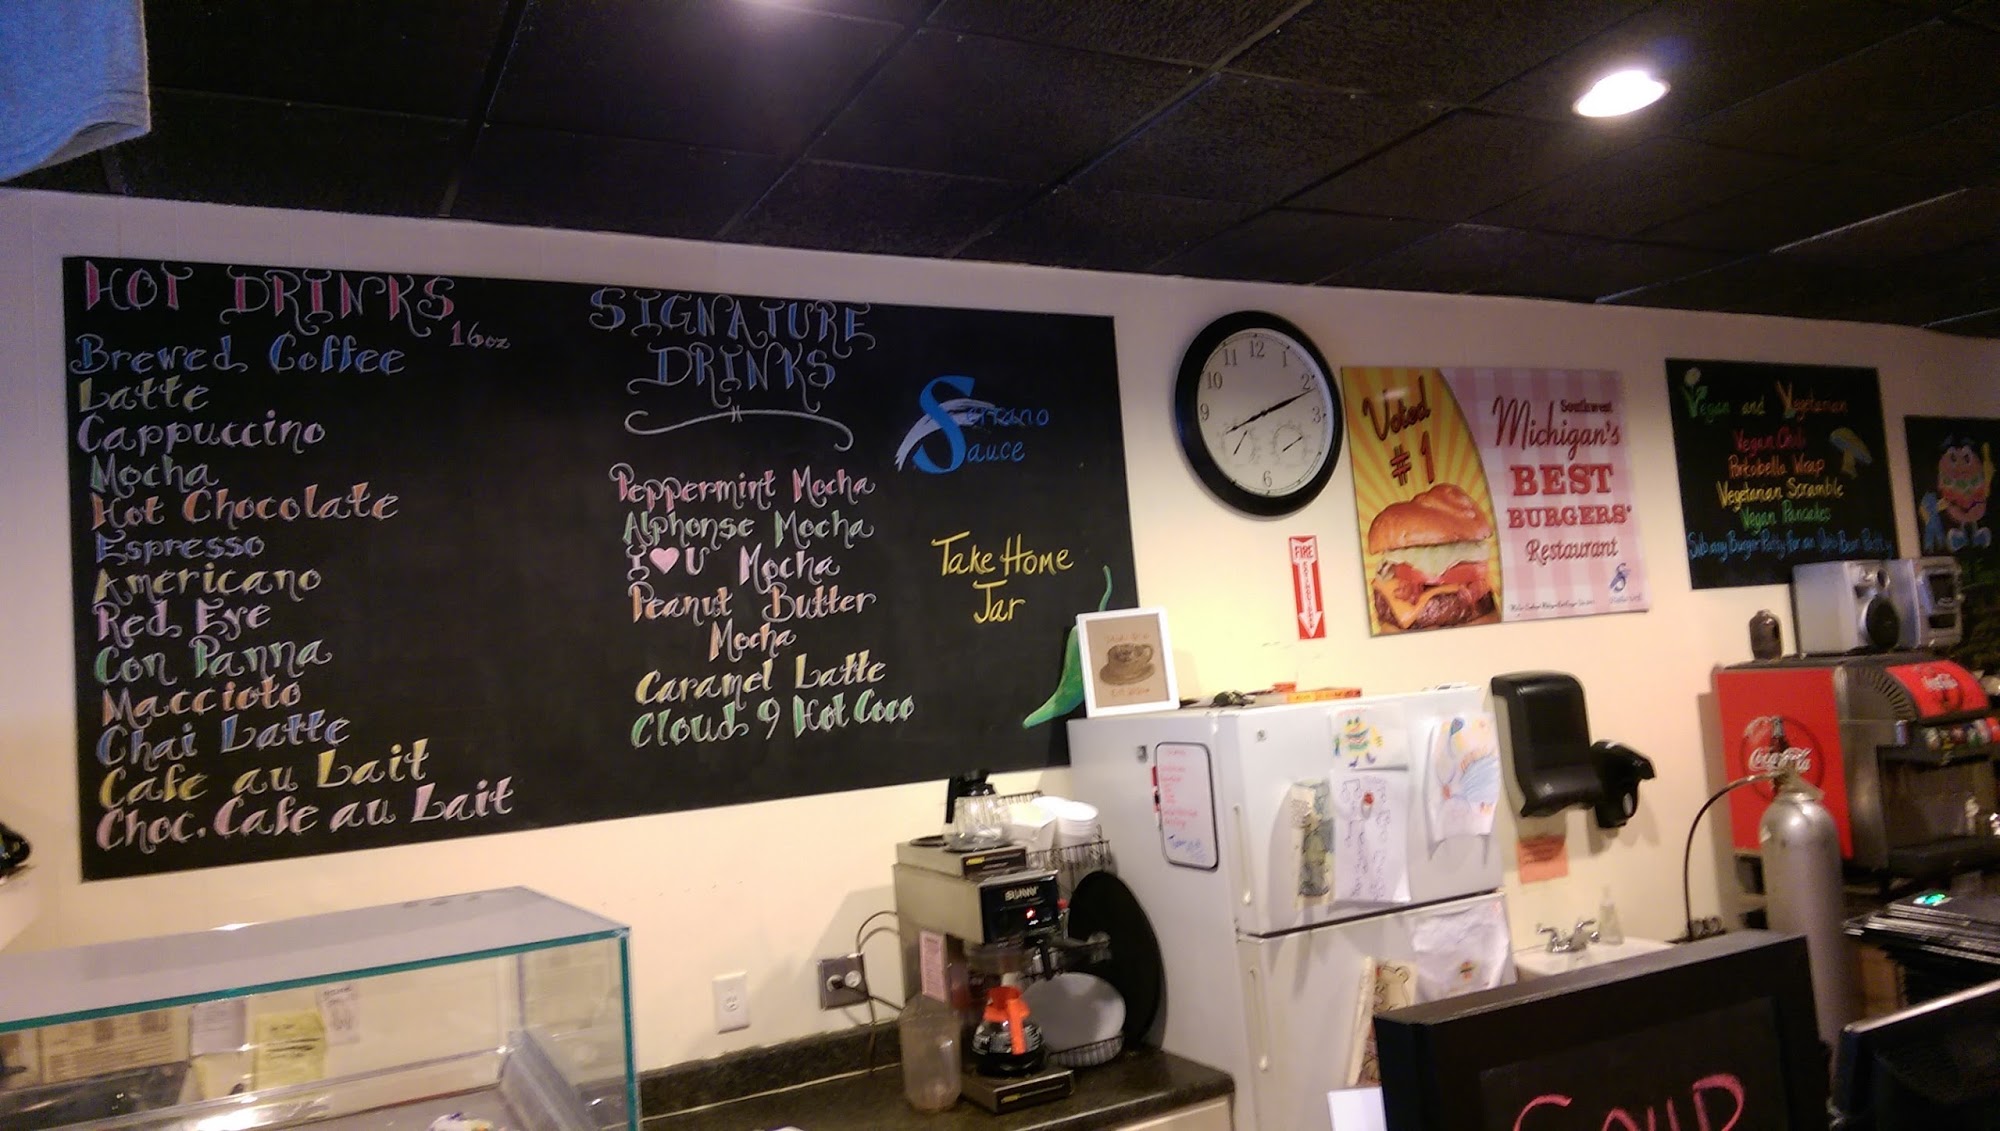 HOT DRINKS
16oz
Brewed Coffee
Latte
Cappuccino
Mocha
Hot Chocolate
Espresso
Americano
Red Eye
Con Panna
Maccioto
Chai Latte
Cafe au Lait
Choc. Cafe au Lait
SIGNATURE
DRINKS
Peppermint Mocha
Alphonse Mocha
I ♥ U Mocha
Peanut Butter
Mocha
Caramel Latte
Cloud 9 Hot Coco
Serrano
Sauce
Take Home
Jar
11 12 1
10 2
9 3
6
FIRE
Voted
#1
Southwest
Michigan's
BEST
BURGERS'
Restaurant
Vegan and Vegetarian
Vegan Chili
Portobella Wrap
Vegetarian Scramble
Vegan Pancakes
Sub any Burger Patty for an
BUNN
Coca-Cola